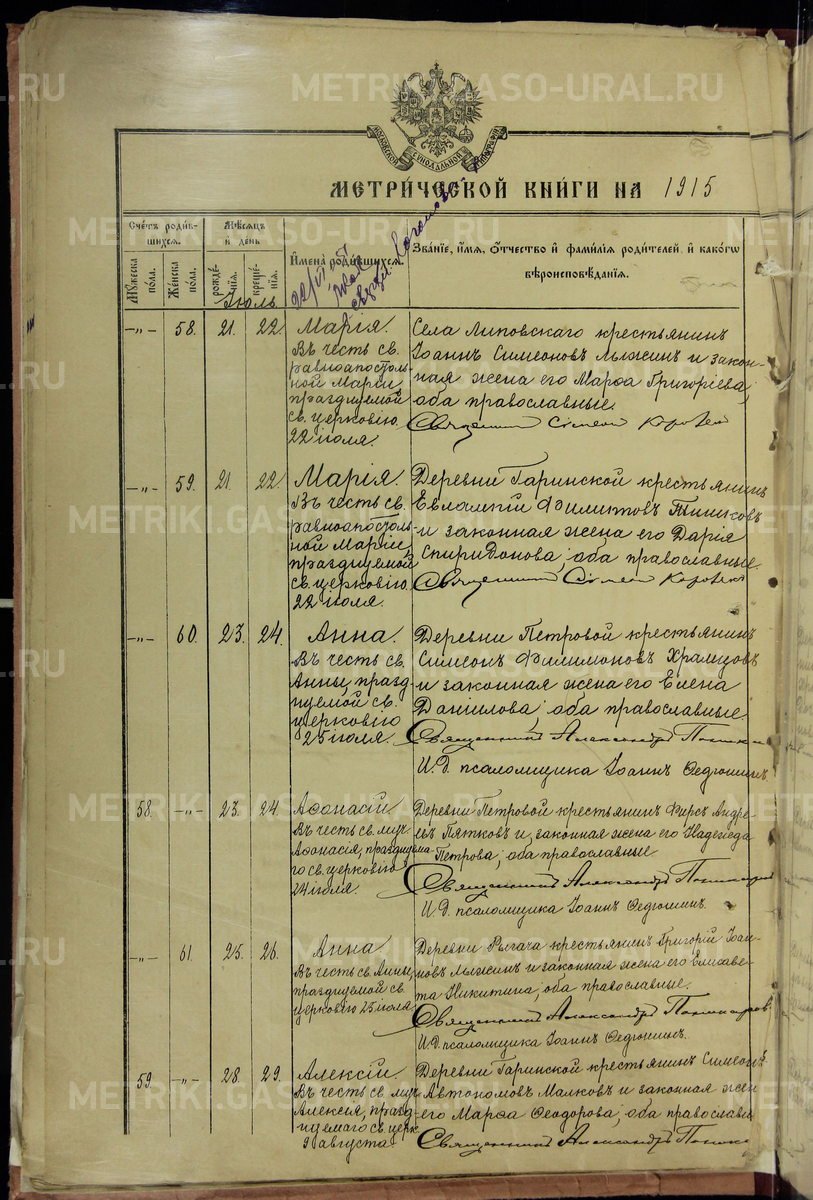 METRIKI.GASO-URAL.RU
МОСКОВСКОЙ СѴНОДАЛЬНОЙ ТИПОГРАФІИ
МЕТРИ́ЧЕСКОЙ КНИ́ГИ НА 1915
Сче́тъ роди́вшихся.
Му́жеска по́ла.
Же́нска по́ла.
Мѣ́сяцъ и҆ день
рожде́нїя.
креще́нїя.
И҆мена̀ роди́вшихся.
Зва́нїе, и҆́мѧ, ѻ҆́тчество и҆ фами́лїѧ роди́телей, и҆ како́гѡ вѣроисповѣ́данїѧ.
Іюль.
-"- 58. 21. 22. Марія.
Въ честь св.
равноапостоль-
ной Маріи,
празднуемой
св. церковію
22 іюля.
Села Липовскаго крестьянинъ
Іоаннъ Симеоновъ Лыжинъ и закон-
ная жена его Марѳа Григоріева,
оба православные.
Священникъ Симеон
-"- 59. 21. 22. Марія.
Въ честь св.
равноапостоль-
ной Маріи,
празднуемой
св. церковію
22 іюля.
Деревни Гаринской крестьянинъ
Евлампій Филиповъ
и законная жена его Дарія
Спиридонова, оба православные.
Священникъ Симеон
-"- 60. 23. 24. Анна.
Въ честь св.
Анны, празд-
нуемой св.
церковію
25 іюля.
Деревни Петровой крестьянинъ
Симеонъ Филимоновъ Храмцовъ
и законная жена его Елена
Даніилова, оба православные.
Священникъ Александръ
И.д. псаломщика Іоаннъ Ѳедюшинъ.
58. -"- 23. 24. Аѳонасій.
Въ честь св. муч.
Аѳонасія, празднуема-
го св. церковію
24 іюля.
Деревни Петровой крестьянинъ Фирсъ Андре-
евъ Пятковъ и законная жена его Надежда
Петрова, оба православные.
Священникъ Александръ
И.д. псаломщика Іоаннъ Ѳедюшинъ.
-"- 61. 25. 26. Анна
Въ честь св. Анны,
празднуемой св.
церковію 25 іюля.
Деревни крестьянинъ Григорій Іоан-
новъ Лыжинъ и законная жена его Елисаве-
та Никитина, оба православные.
Священникъ Александръ
И.д. псаломщика Іоаннъ Ѳедюшинъ.
59 -"- 28. 29. Алексій.
Въ честь св. муч.
Алексія, празд-
нуемаго св. церк.
9 августа
Деревни Гаринской крестьянинъ Симеонъ
Автономовъ Малковъ и законная жен
его Марѳа Ѳеодорова, оба православн
Священникъ Александръ